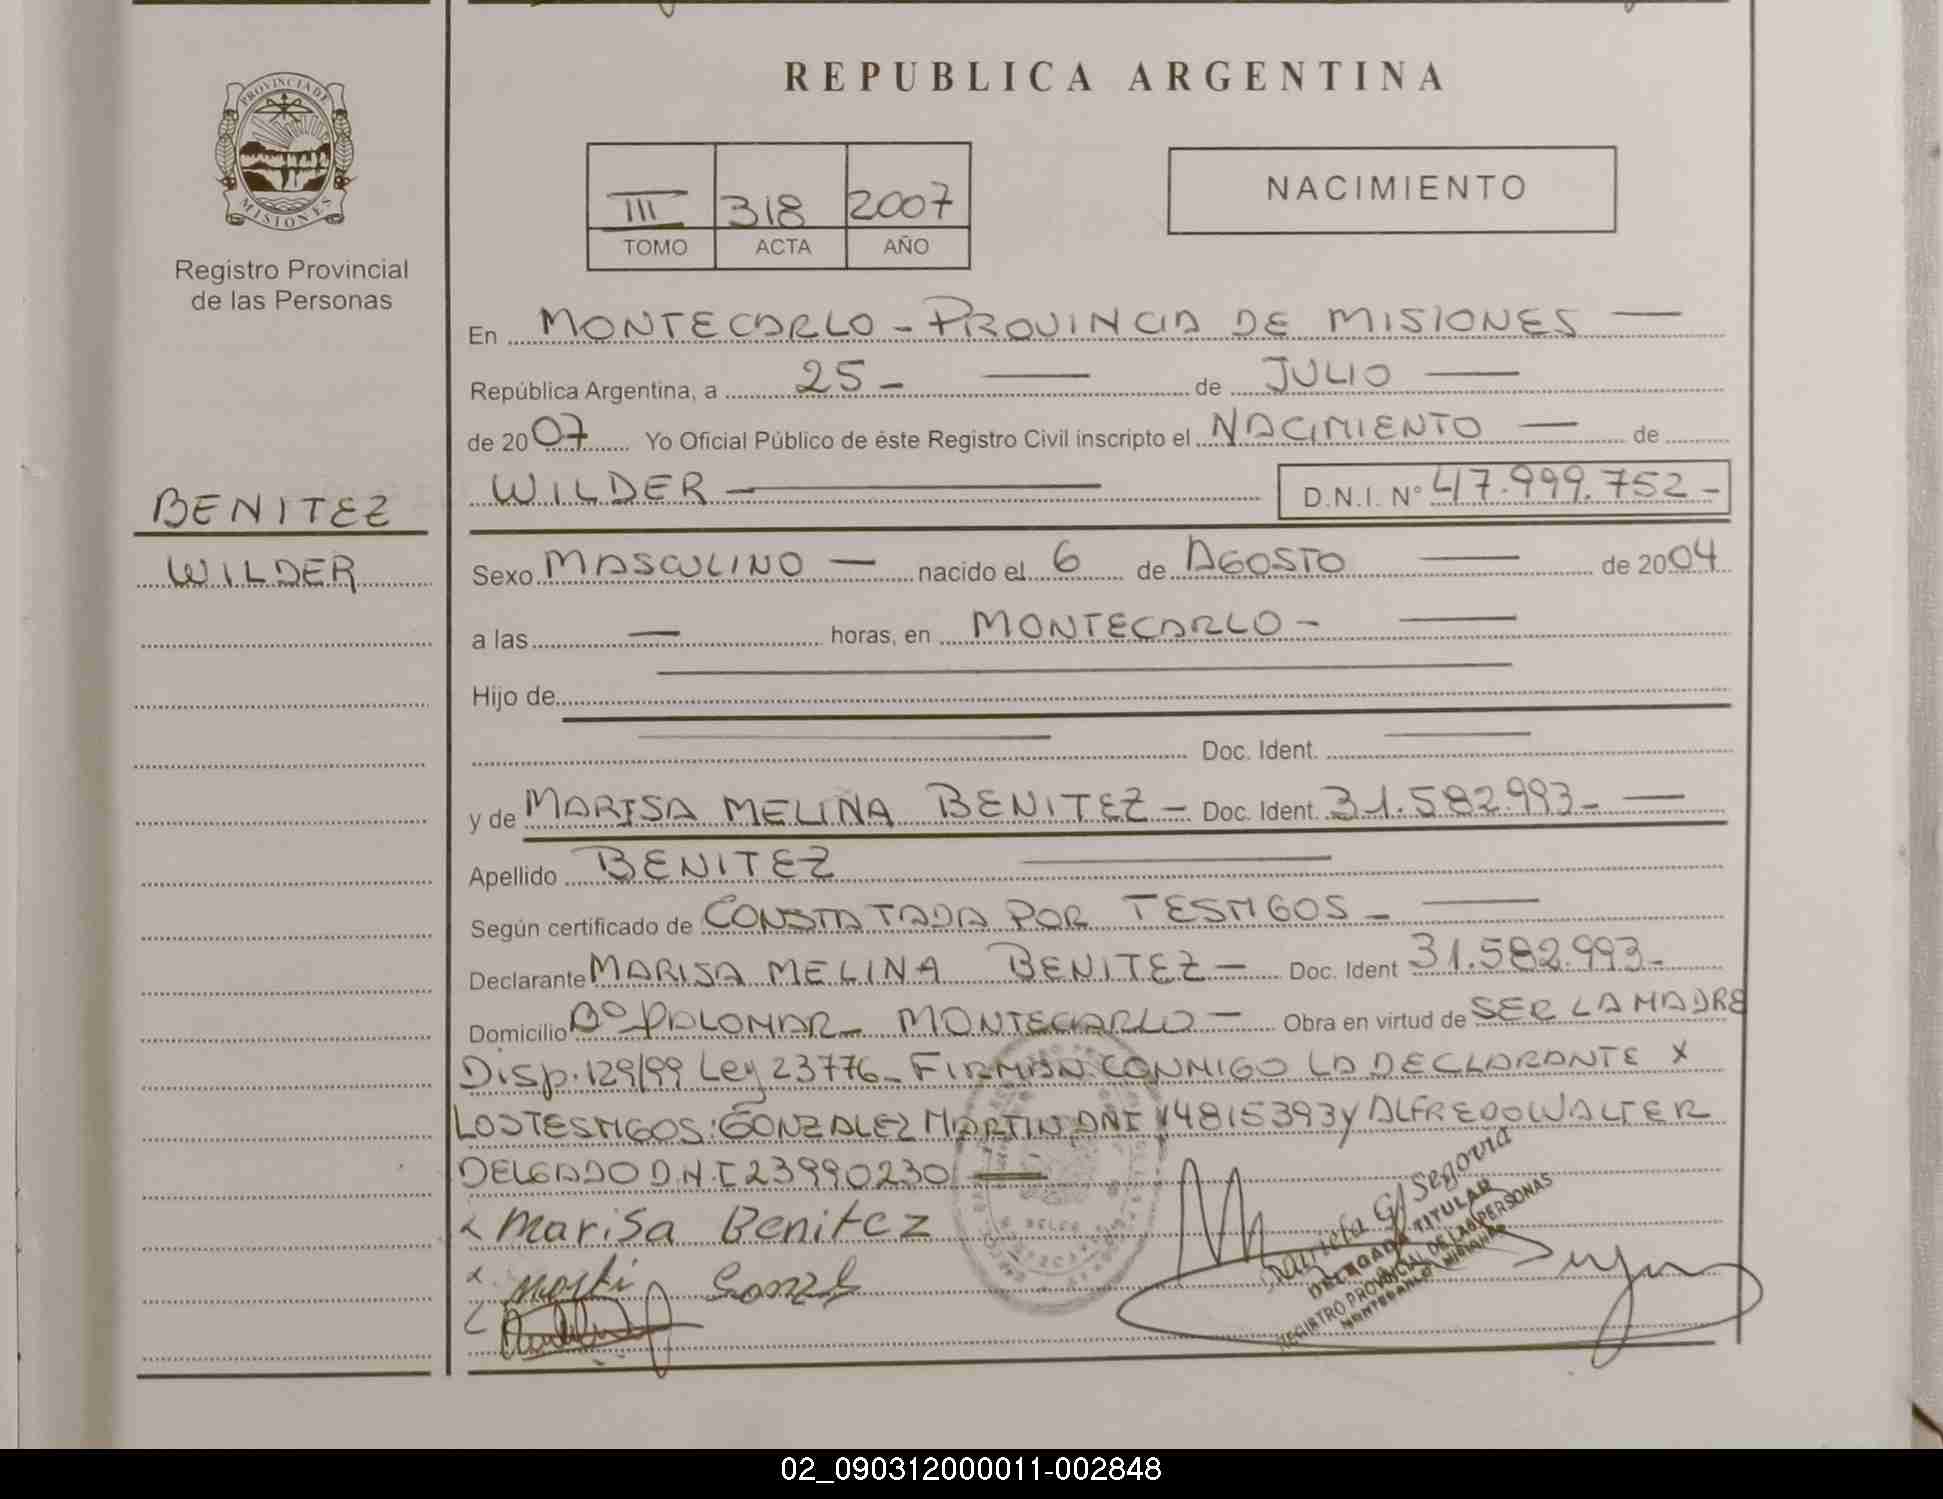 REPUBLICA ARGENTINA
PROVINCIA DE
MISIONES
Registro Provincial
de las Personas
III 318 2007
TOMO ACTA AÑO
NACIMIENTO
En MONTECARLO - PROVINCIA DE MISIONES —
República Argentina, a 25 - — de JULIO —
de 2007 Yo Oficial Público de éste Registro Civil inscripto el NACIMIENTO — de
WILDER — D.N.I. N° 47.999.752 -
BENITEZ
WILDER
Sexo MASCULINO — nacido el 6 de AGOSTO — de 2004
a las — horas, en MONTECARLO - —
Hijo de
Doc. Ident.
y de MARISA MELINA BENITEZ - Doc. Ident. 31.582.993 - —
Apellido BENITEZ —
Según certificado de CONSTATADA POR TESTIGOS - —
Declarante MARISA MELINA BENITEZ - Doc. Ident 31.582.993 -
Domicilio B° PALOMAR - MONTECARLO - Obra en virtud de SER LA MADRE
Disp. 129/99 Ley 23776 - FIRMAN CONMIGO LA DECLARANTE X
LOS TESTIGOS: GONZALEZ MARTIN DNI 14815393 y ALFREDO WALTER
DELGADO D.N.I 23990230 —
x Marisa Benitez
x
Segovia
DELEGADA TITULAR
REGISTRO PROVINCIAL DE LAS PERSONAS
MONTECARLO - MISIONES
02_090312000011-002848